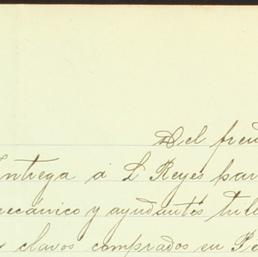 Del fren
Entrega á L Reyes par
mecánico y ayudantes tub
clavos comprados en